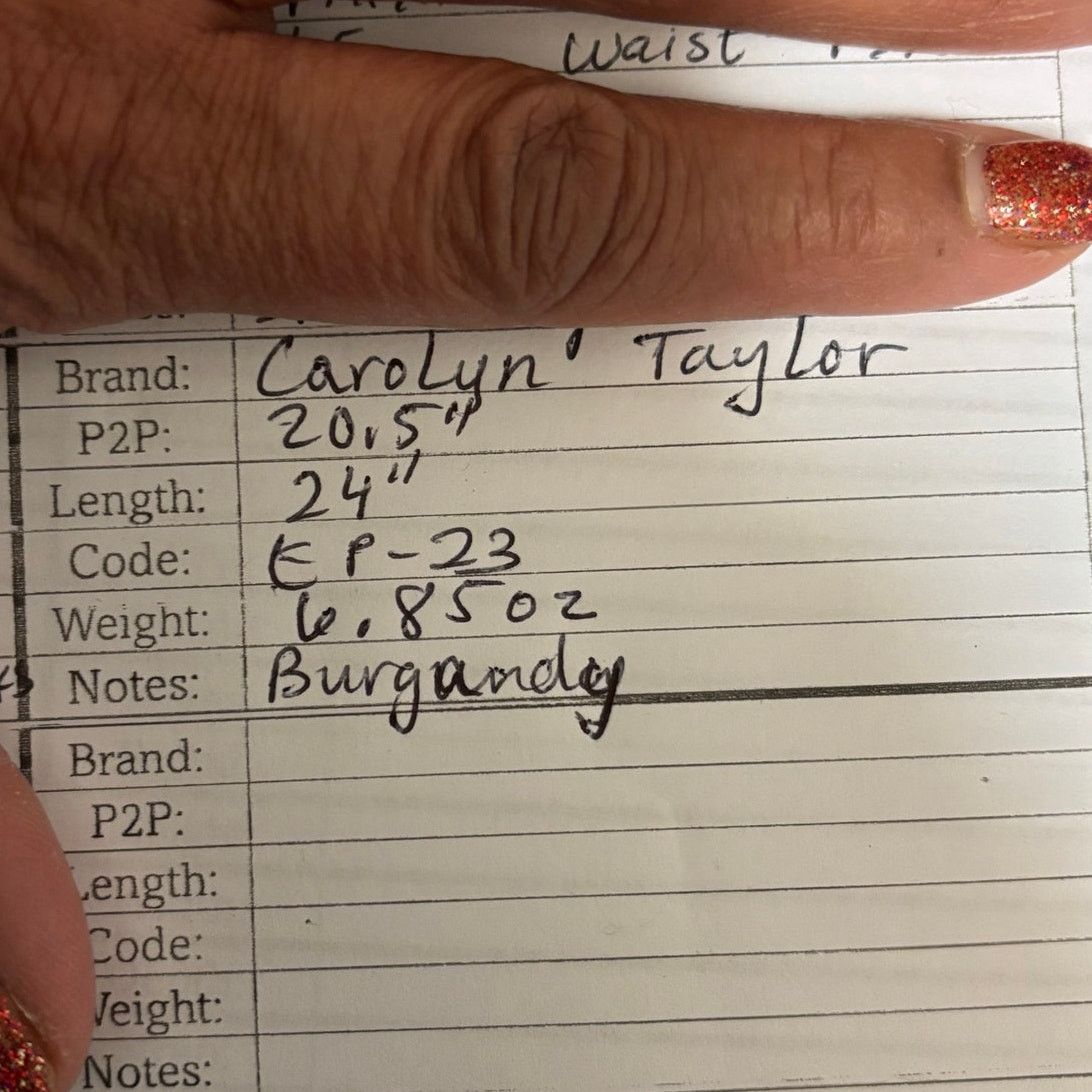 Waist
Brand: Carolyn' Taylor
P2P: 20.5"
Length: 24"
Code: EP-23
Weight: 6.85oz
Notes: Burgandy
Brand:
P2P:
Length:
Code:
Weight:
Notes: